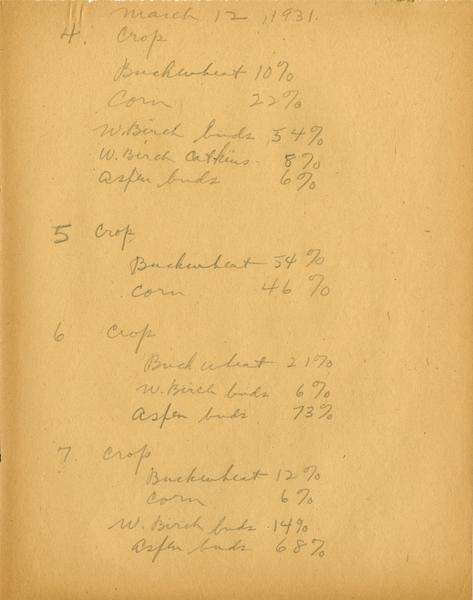 March 12, 1931.
4. Crop
Buckwheat 10%
Corn 22%
W. Birch buds 54%
W. Birch Catkins. 8%
Aspen buds 6%
5 Crop
Buckwheat 54%
Corn 46%
6 Crop
Buckwheat 21%
W. Birch buds 6%
Aspen buds 73%
7. Crop
Buckwheat 12%
Corn 6%
W. Birch buds 14%
Aspen buds 68%